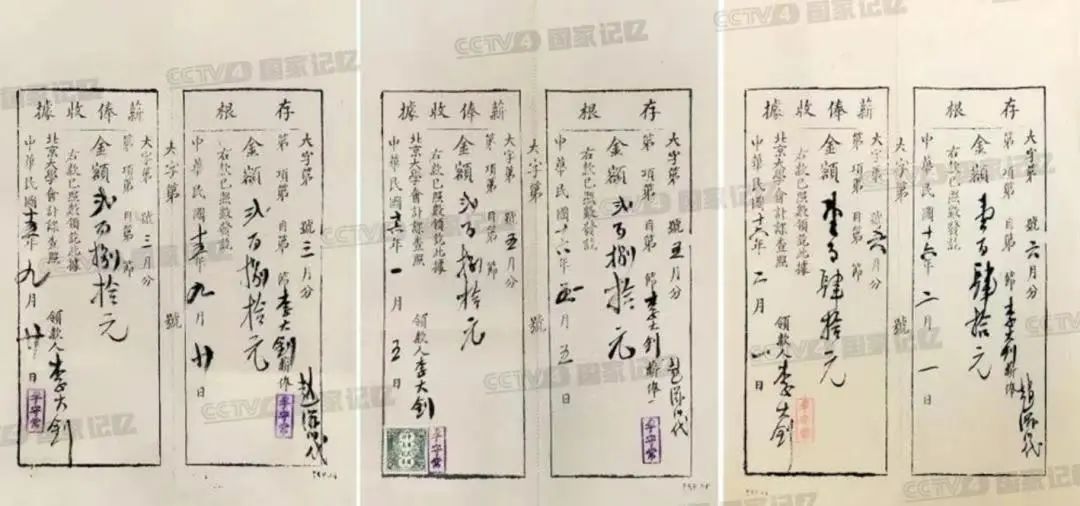 CCTV4 国家记忆
存根
大字第 號三月分
第 項第 目第 節李大釗薪俸
金額弍百捌拾元
右款已照數發訖
中華民國十五年九月廿日
李守常
大字第 號
薪俸收據
大字第 號三月分
第 項第 目第 節
金額弍百捌拾元
右款已照數領訖此據
北京大學會計課查照
領款人李大釗
李守常
中華民國十五年九月廿日
CCTV4 国家记忆
存根
大字第 號五月分
第 項第 目第 節李大釗薪俸
金額弍百捌拾元
右款已照數發訖
中華民國十六年 月五日
李守常
大字第 號
薪俸收據
大字第 號五月分
第 項第 目第 節
金額弍百捌拾元
右款已照數領訖此據
北京大學會計課查照
領款人李大釗
李守常
中華民國十六年一月五日
CCTV4 国家记忆
存根
大字第 號六月分
第 項第 目第 節李大釗薪俸
金額壹百肆拾元
右款已照數發訖
中華民國十六年二月一日
大字第 號
薪俸收據
大字第 號六月分
第 項第 目第 節
金額壹百肆拾元
右款已照數領訖此據
北京大學會計課查照
領款人李大釗
李守常
中華民國十六年二月一日